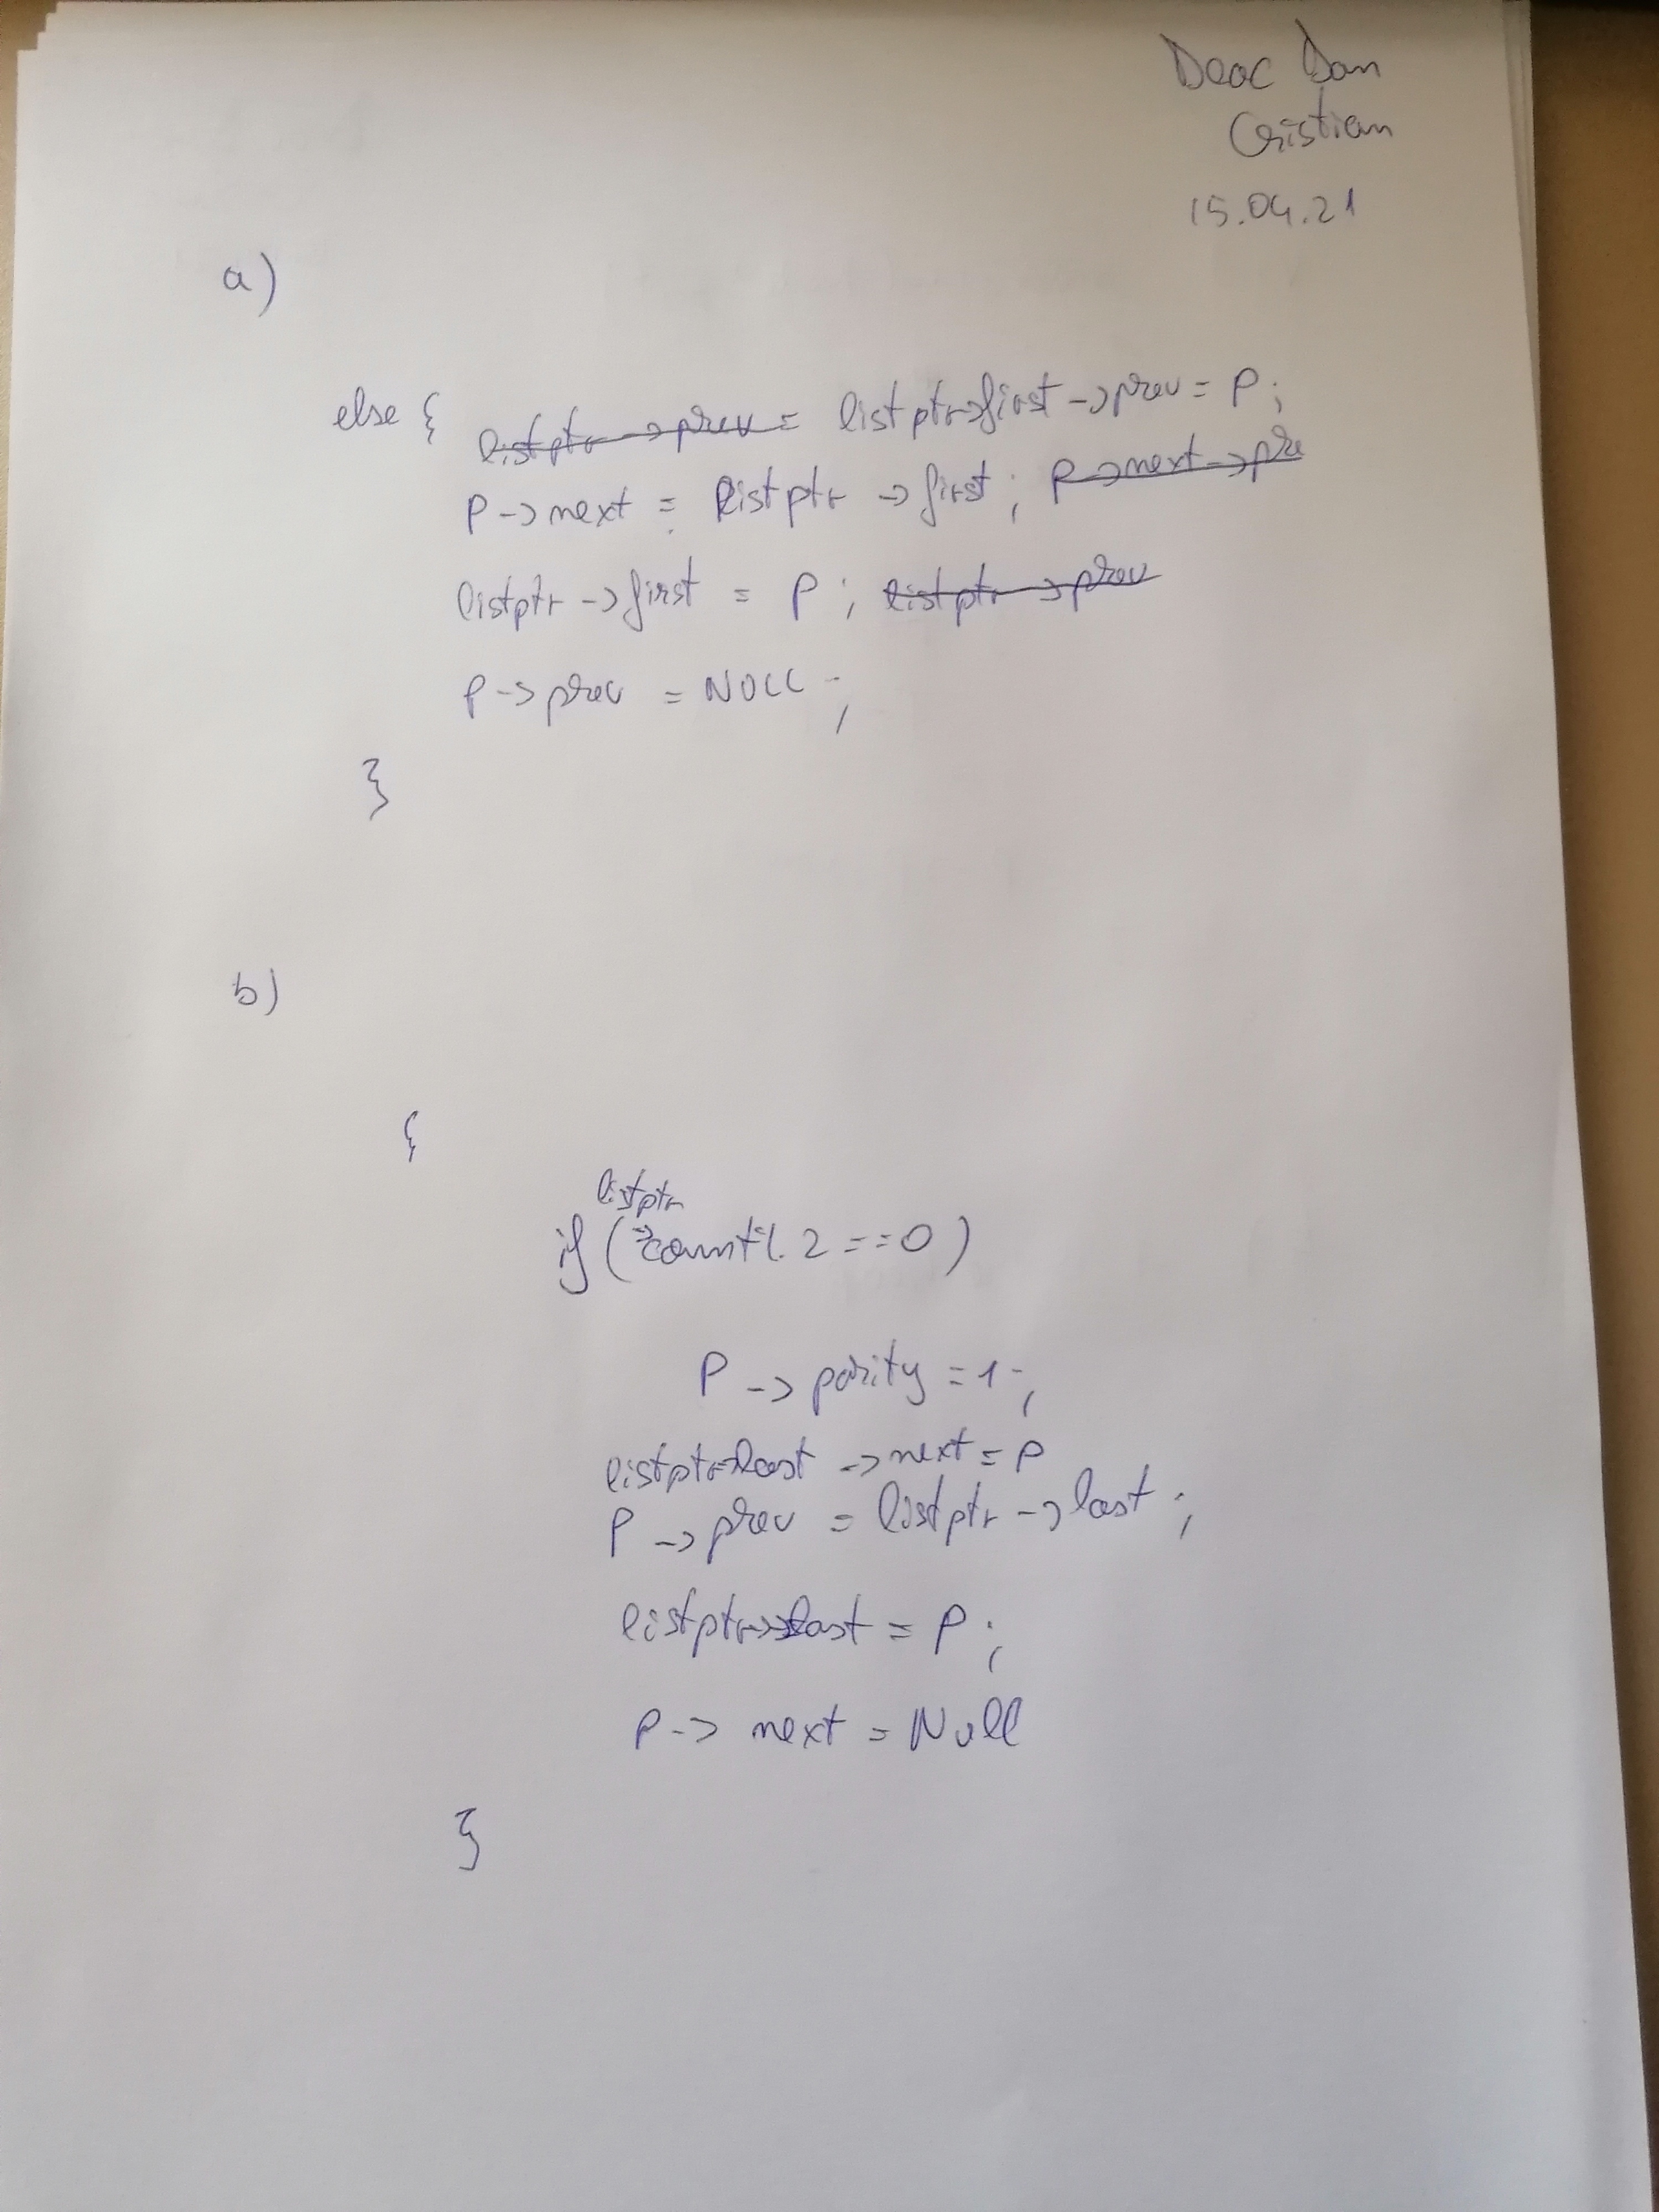 Deac Dan
Cristian
15.04.21
a)
else { listptr->prev = listptr->first->prev = P;
P->next = listptr->first; P->next->pre
listptr->first = P; listptr->prev
P->prev = NULL;
}
b)
{
listptr
if (->count % 2 == 0)
P->parity = 1;
listptr->last->next = P
P->prev = listptr->last;
listptr->last = P;
P-> next = Null
}